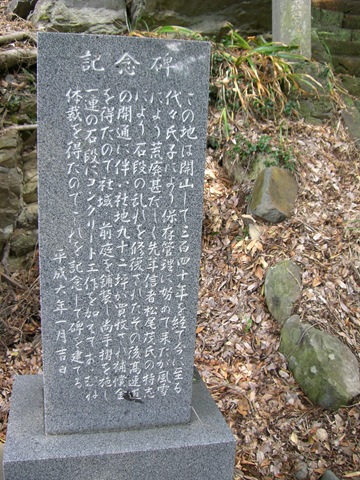 記念碑
この地は開山して三百四十年を経て今に至る
代々氏子によう保存管理に努めて来たが風雪
によう荒廃甚だしく先年信者松尾茂氏の特志
によう石段の乱れを修復されたその後高速道
の開通に伴い社地九十二坪が買収され補償金
を得たので社域 前庭を舗装し尚手摺を施し
一連の石段にコンクリート工作を加えて
体裁を得たのでこれを記念して碑を建てる
平成六年一月吉日